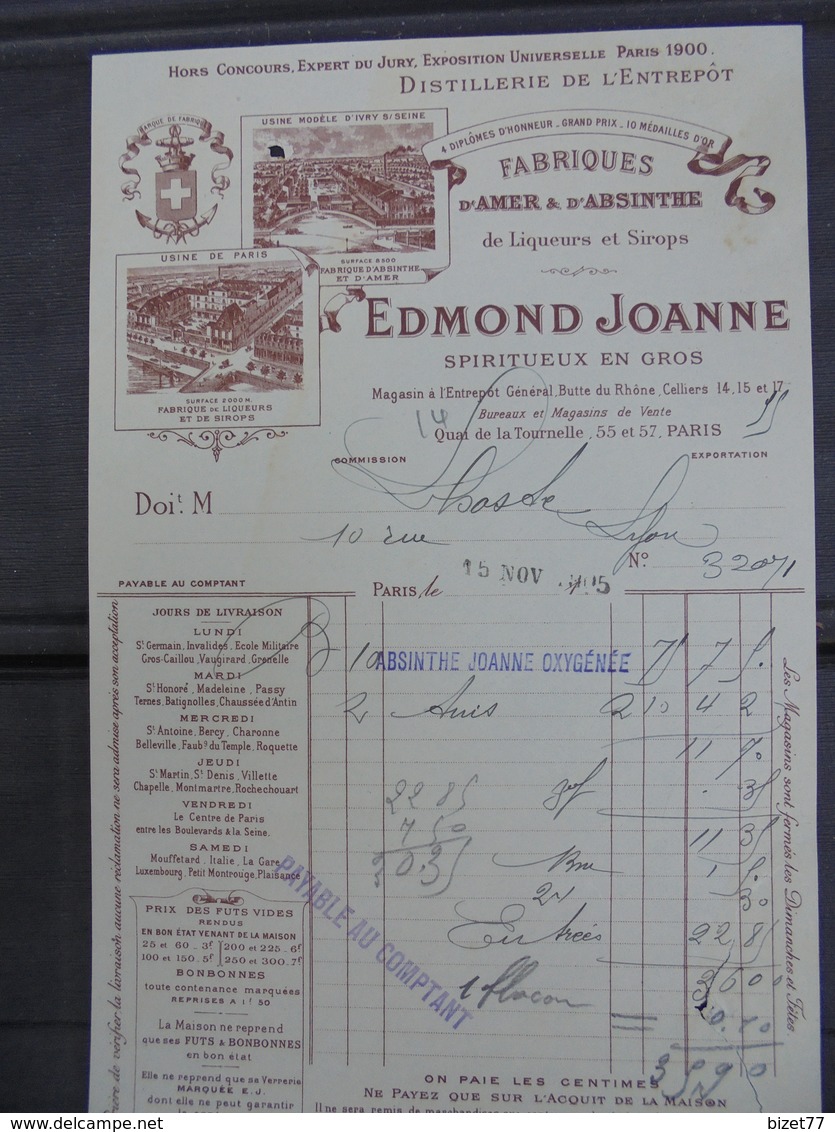 HORS CONCOURS, EXPERT DU JURY, EXPOSITION UNIVERSELLE PARIS 1900.
DISTILLERIE DE L'ENTREPÔT
MARQUE DE FABRIQUE
USINE MODÈLE D'IVRY S/SEINE
4 DIPLÔMES D'HONNEUR - GRAND PRIX - 10 MÉDAILLES D'OR
FABRIQUES
D'AMER & D'ABSINTHE
de Liqueurs et Sirops
SURFACE 8500
FABRIQUE D'ABSINTHE
ET D'AMER
USINE DE PARIS
SURFACE 2000 M.
FABRIQUE DE LIQUEURS
ET DE SIROPS
EDMOND JOANNE
SPIRITUEUX EN GROS
Magasin à l'Entrepôt Général, Butte du Rhône, Celliers 14, 15 et 17
Bureaux et Magasins de Vente
14
Quai de la Tournelle, 55 et 57, PARIS
COMMISSION
EXPORTATION
Doit. M
10 rue Lyon
No. 32071
PAYABLE AU COMPTANT
PARIS, le 15 NOV 05
JOURS DE LIVRAISON
LUNDI
St Germain, Invalides, Ecole Militaire
Gros-Caillou, Vaugirard, Grenelle
MARDI
St Honoré, Madeleine, Passy
Ternes, Batignolles, Chaussée d'Antin
MERCREDI
St Antoine, Bercy, Charonne
Belleville, Faubg du Temple, Roquette
JEUDI
St Martin, St Denis, Villette
Chapelle, Montmartre, Rochechouart
VENDREDI
Le Centre de Paris
entre les Boulevards & la Seine.
SAMEDI
Mouffetard, Italie, La Gare
Luxembourg, Petit Montrouge, Plaisance
10 ABSINTHE JOANNE OXYGÉNÉE 75 7 5.
2 Anis 2 10 4 2
11 70
. 35
11 35
22 85
Entrées 22 85
1 flacon
PAYABLE AU COMPTANT
PRIX DES FUTS VIDES
RENDUS
EN BON ÉTAT VENANT DE LA MAISON
25 et 60 . 3f 200 et 225 . 6f
100 et 150 . 5f 250 et 300 . 7f
BONBONNES
toute contenance marquées
REPRISES A 1f 50
La Maison ne reprend
que ses FUTS & BONBONNES
en bon état
Elle ne reprend que sa Verrerie
MARQUÉE E.J.
dont elle ne peut garantir
ON PAIE LES CENTIMES
NE PAYEZ QUE SUR L'ACQUIT DE LA MAISON
Il ne sera remis de marchandises
Prière de vérifier la livraison aucune réclamation ne sera admise après son acceptation
Les Magasins sont fermés les Dimanches et Fêtes.
bizet77